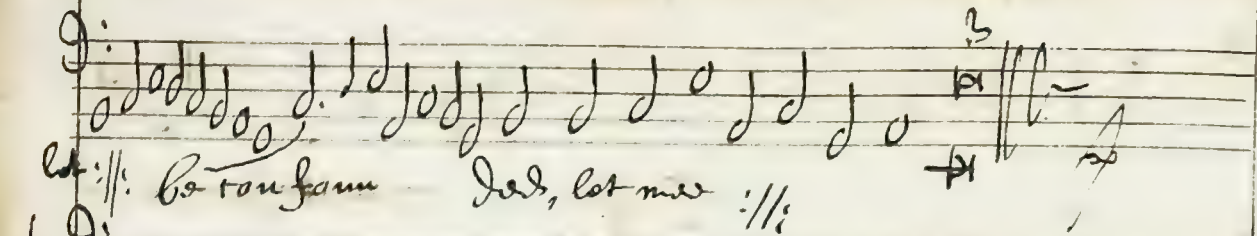 3
let :||: be confoun ded, let mee :||: